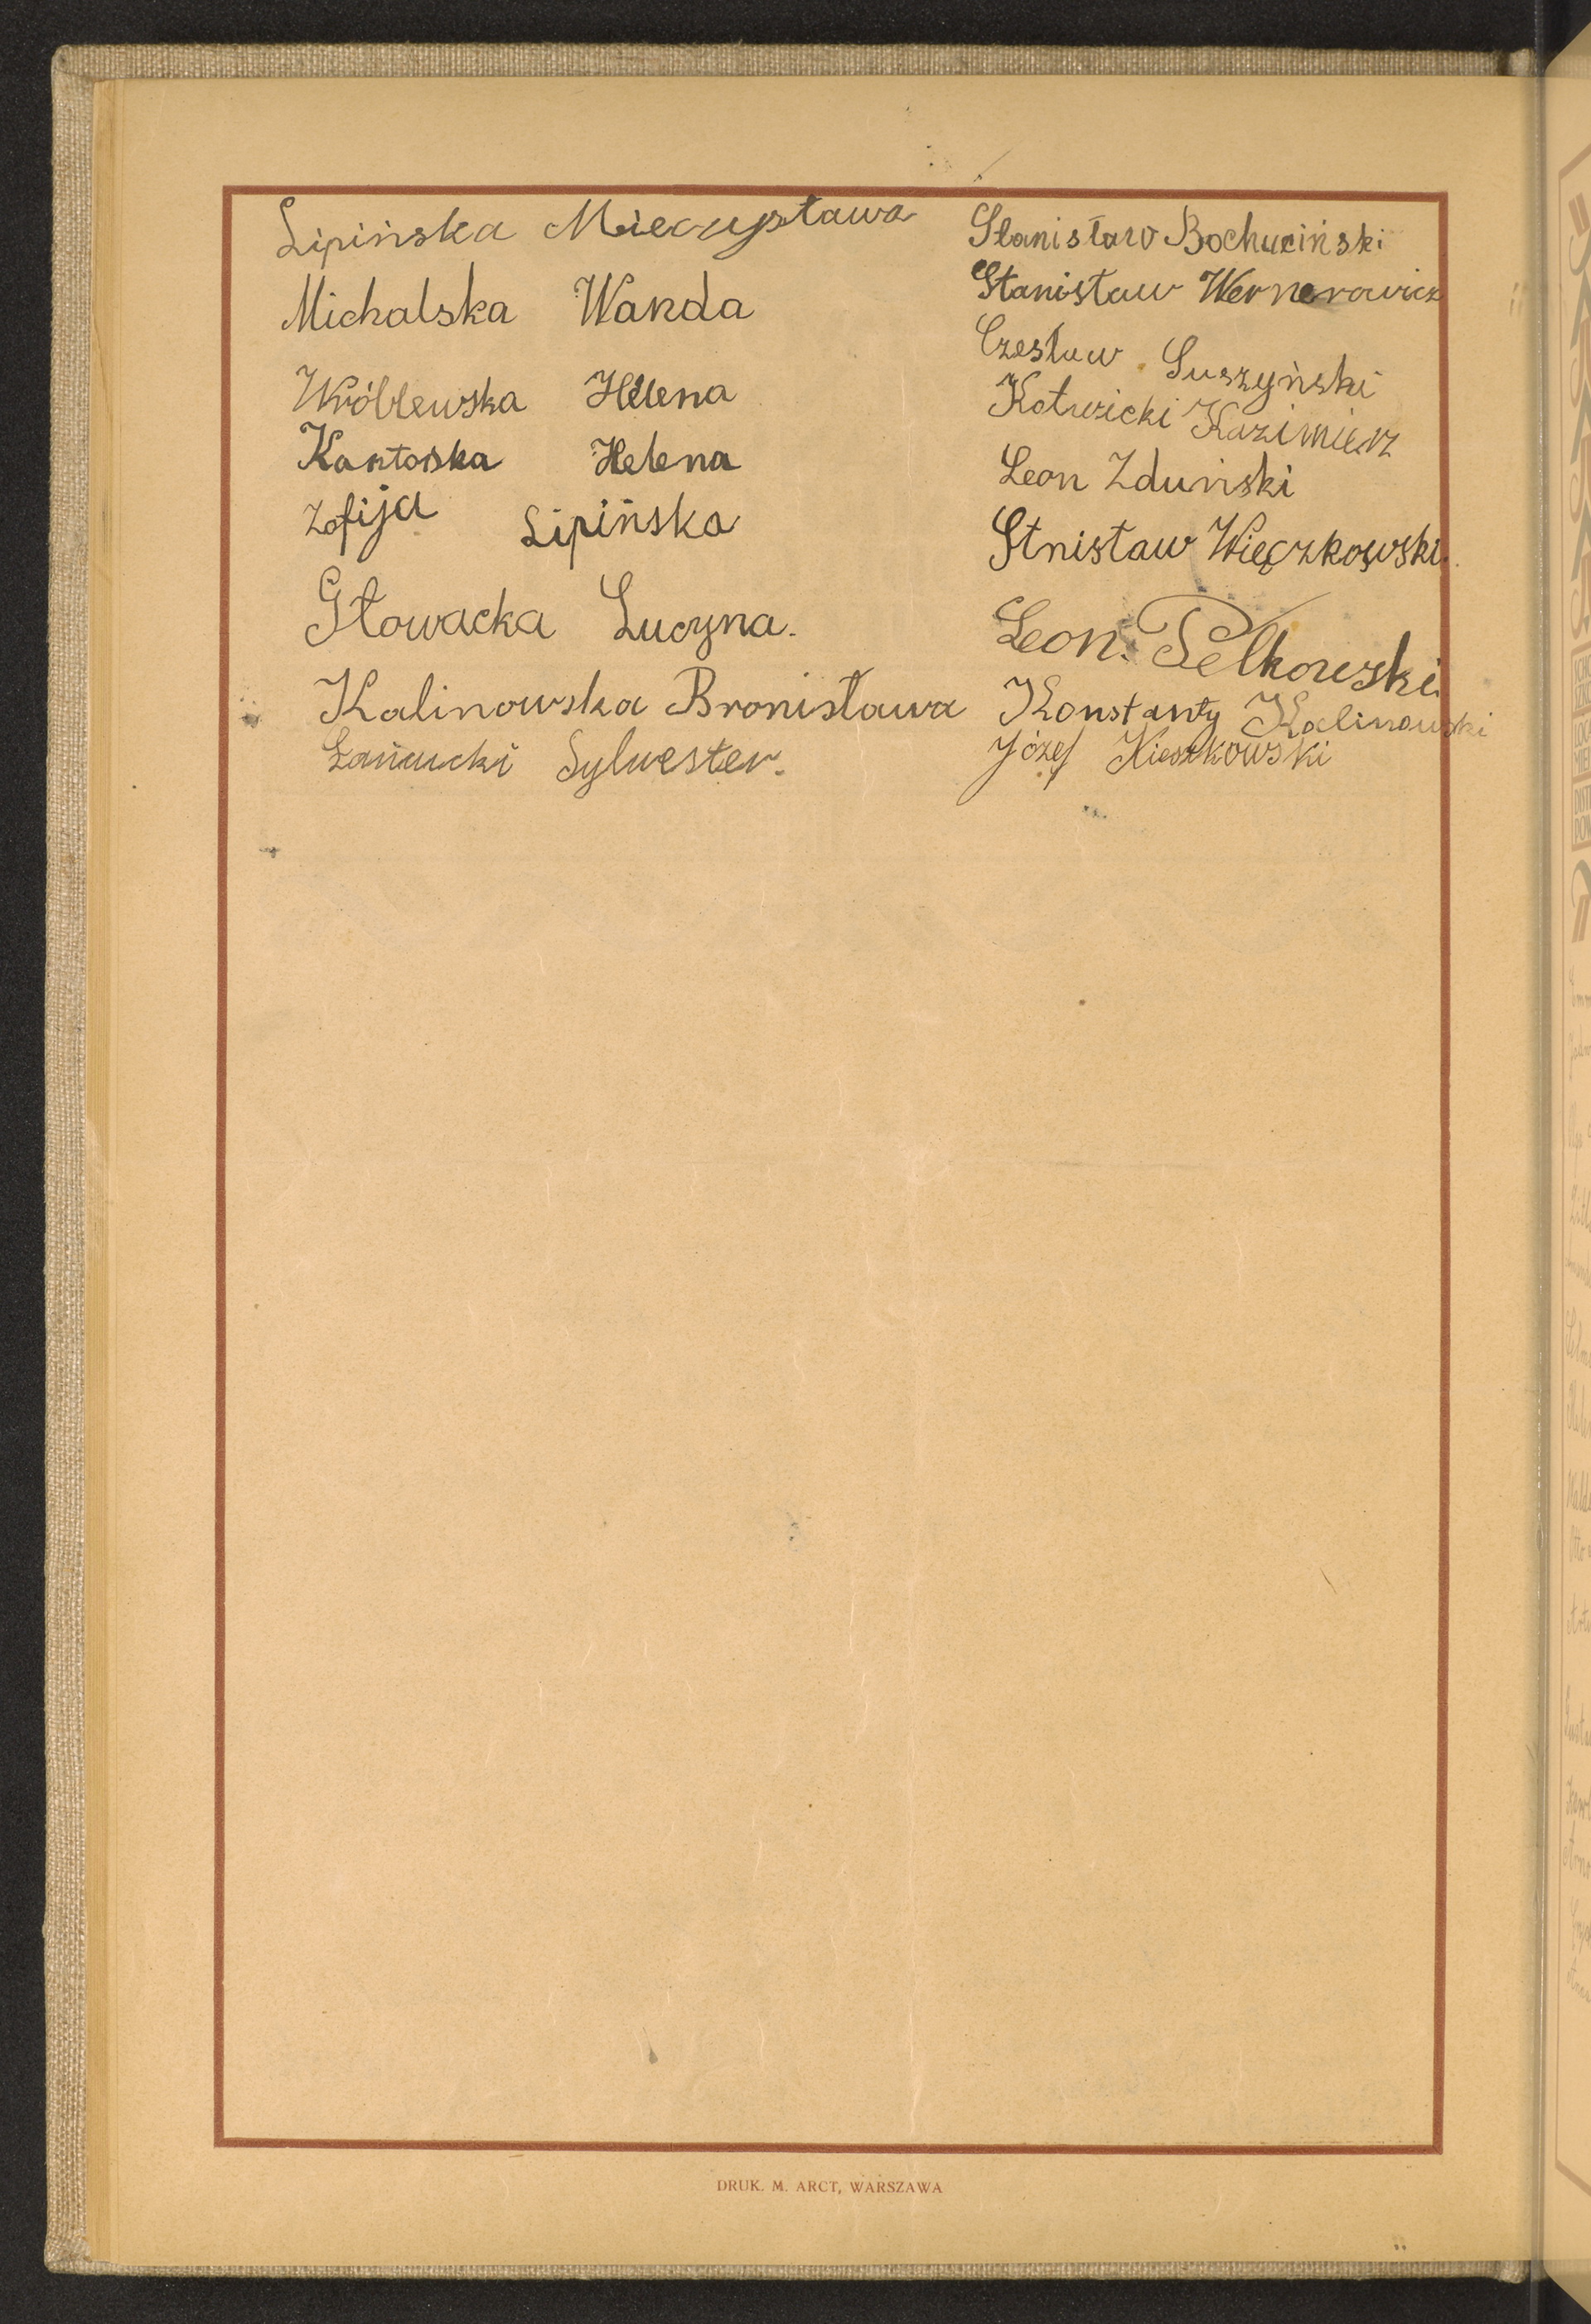 Lipińska Mieczysława
Michalska Wanda
Wróblewska Helena
Kantorska Helena
Zofija Lipińska
Głowacka Lucyna.
Kalinowska Bronisława
Sylwester.
Stanisław Bochuciński
Stanisław Wernerowicz
Czesław Suszyński
Kotwicki Kazimierz
Leon Zduński
Stnisław Więczkowski.
Leon. Pelkowski
Konstanty Kalinowski
Józef Kieszkowski
DRUK. M. ARCT, WARSZAWA